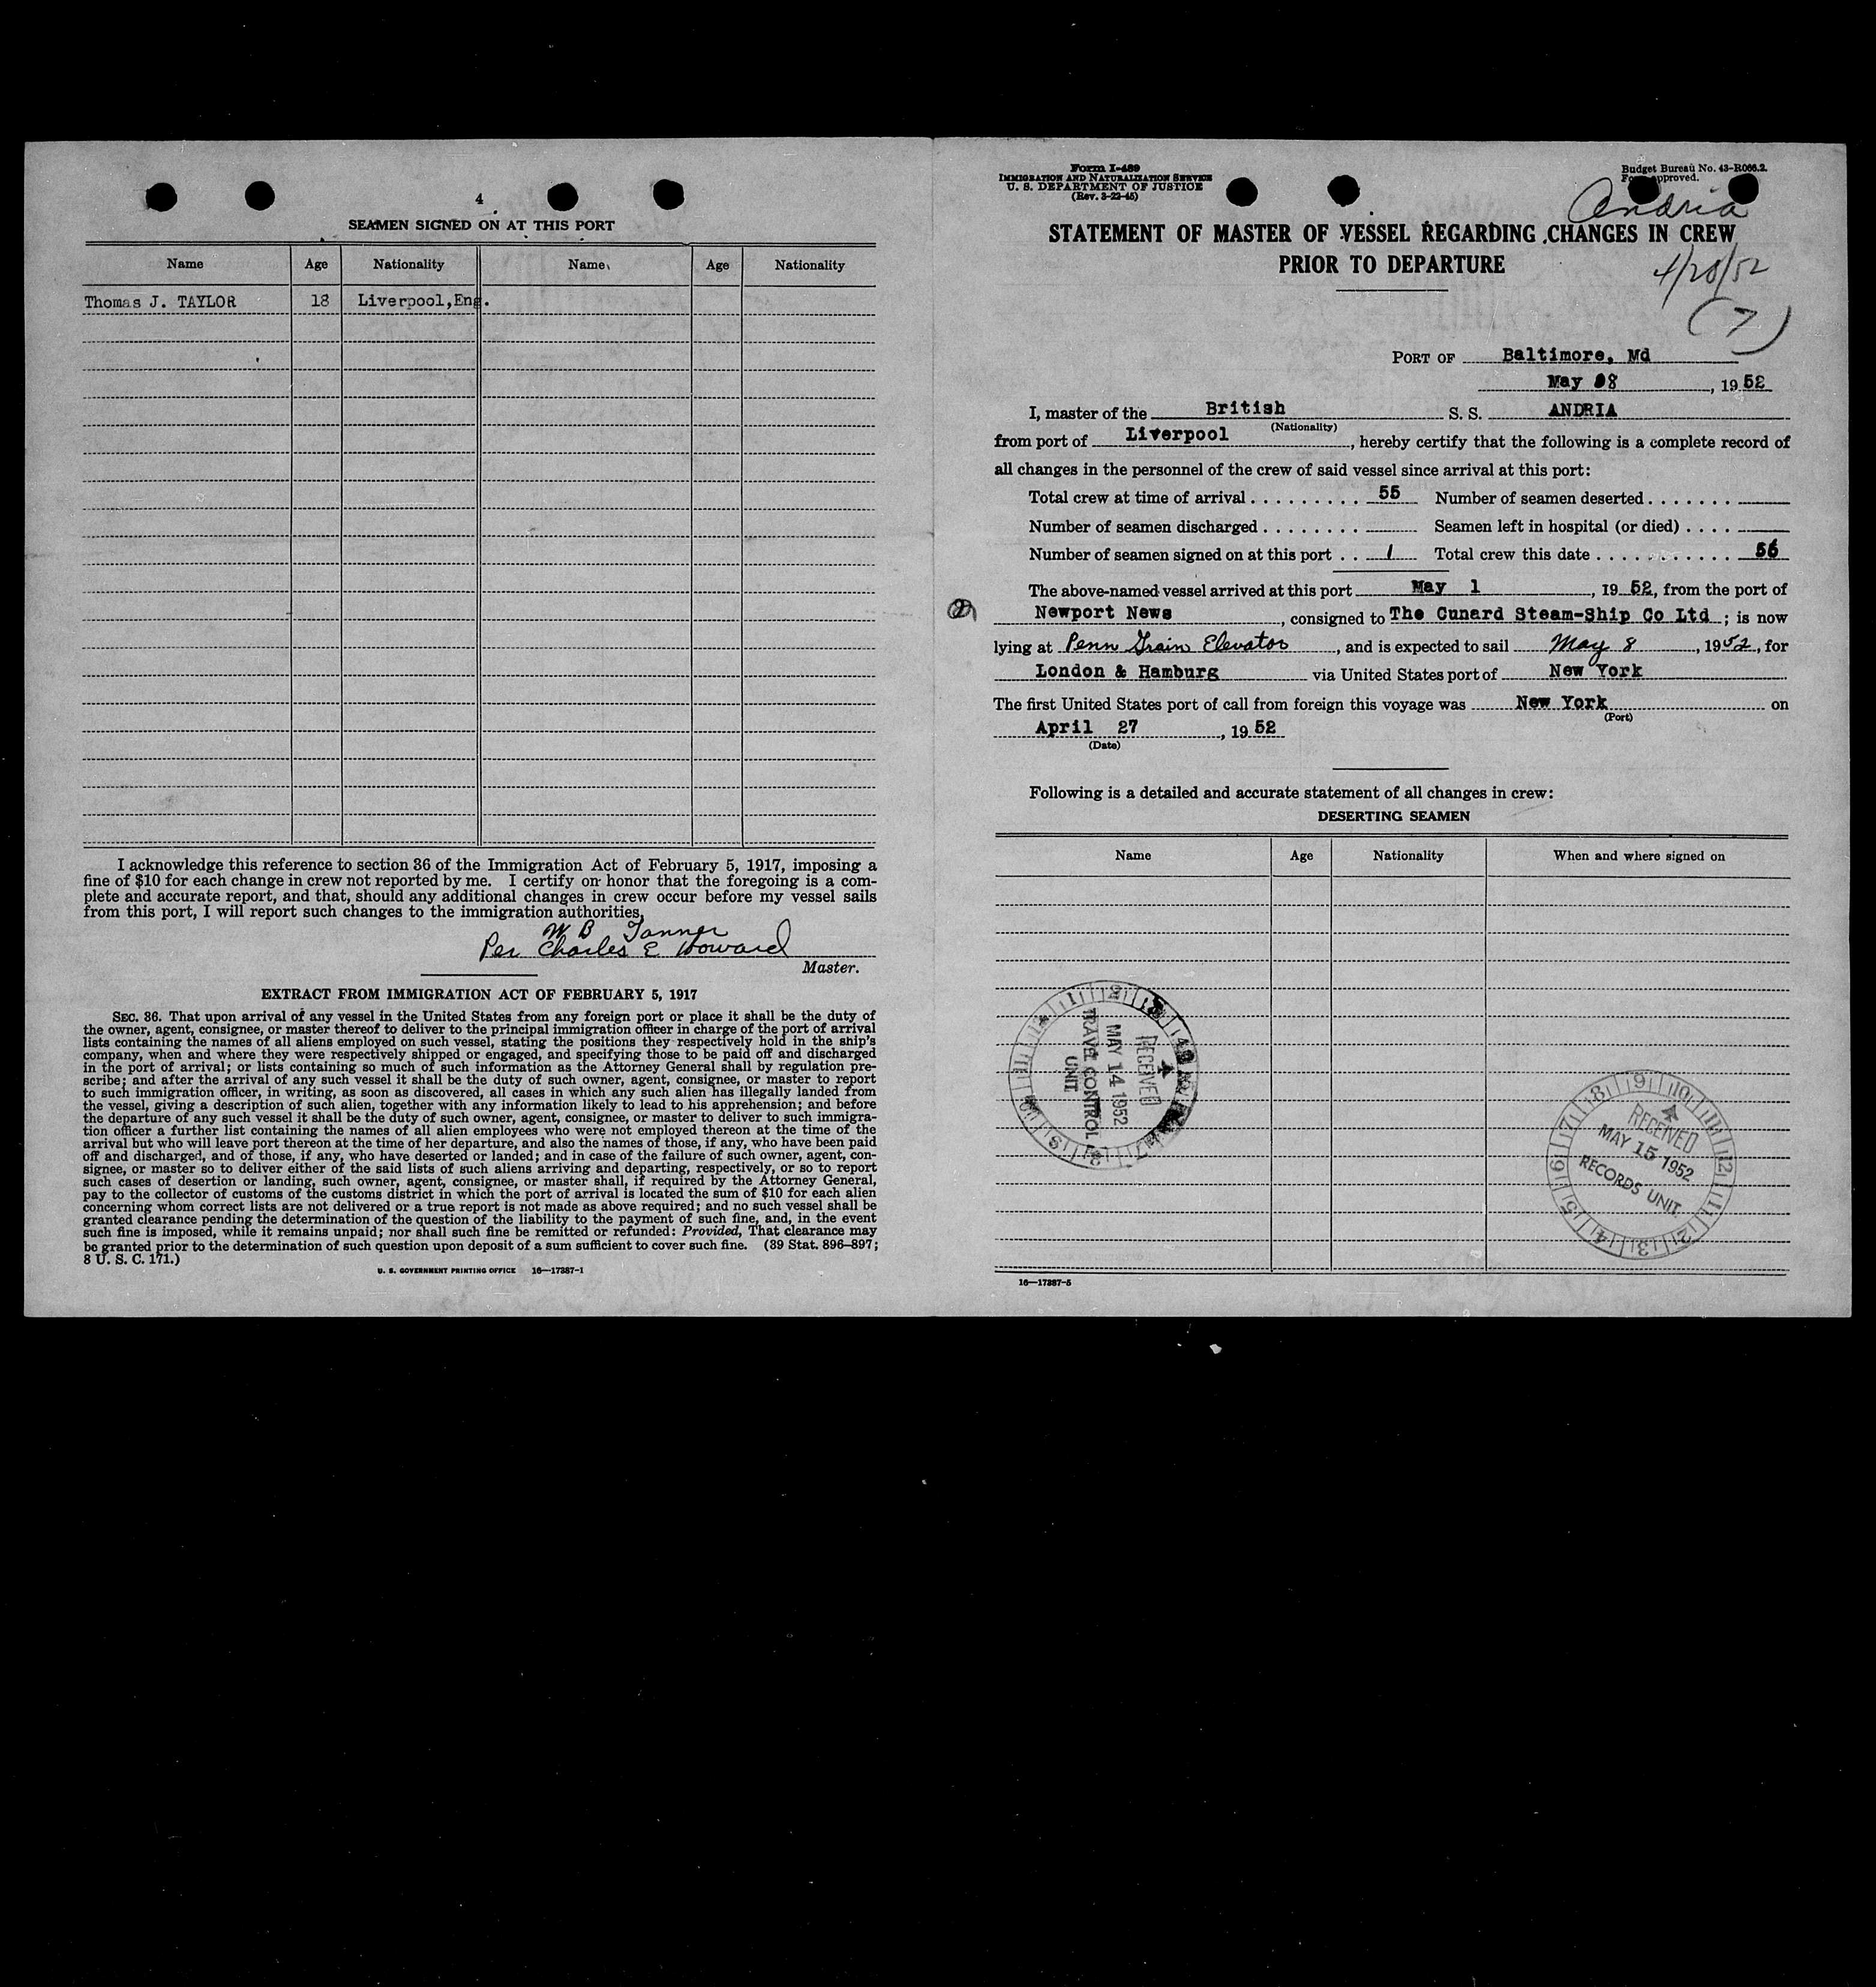 4
SEAMEN SIGNED ON AT THIS PORT
Name Age Nationality Name Age Nationality
Thomas J. TAYLOR 18 Liverpool,Eng.
I acknowledge this reference to section 36 of the Immigration Act of February 5, 1917, imposing a
fine of $10 for each change in crew not reported by me. I certify on honor that the foregoing is a com-
plete and accurate report, and that, should any additional changes in crew occur before my vessel sails
from this port, I will report such changes to the immigration authorities.
W B Tanner
Per Charles E Howard
Master.
EXTRACT FROM IMMIGRATION ACT OF FEBRUARY 5, 1917
SEC. 36. That upon arrival of any vessel in the United States from any foreign port or place it shall be the duty of
the owner, agent, consignee, or master thereof to deliver to the principal immigration officer in charge of the port of arrival
lists containing the names of all aliens employed on such vessel, stating the positions they respectively hold in the ship's
company, when and where they were respectively shipped or engaged, and specifying those to be paid off and discharged
in the port of arrival; or lists containing so much of such information as the Attorney General shall by regulation pre-
scribe; and after the arrival of any such vessel it shall be the duty of such owner, agent, consignee, or master to report
to such immigration officer, in writing, as soon as discovered, all cases in which any such alien has illegally landed from
the vessel, giving a description of such alien, together with any information likely to lead to his apprehension; and before
the departure of any such vessel it shall be the duty of such owner, agent, consignee, or master to deliver to such immigra-
tion officer a further list containing the names of all alien employees who were not employed thereon at the time of the
arrival but who will leave port thereon at the time of her departure, and also the names of those, if any, who have been paid
off and discharged, and of those, if any, who have deserted or landed; and in case of the failure of such owner, agent, con-
signee, or master so to deliver either of the said lists of such aliens arriving and departing, respectively, or so to report
such cases of desertion or landing, such owner, agent, consignee, or master shall, if required by the Attorney General,
pay to the collector of customs of the customs district in which the port of arrival is located the sum of $10 for each alien
concerning whom correct lists are not delivered or a true report is not made as above required; and no such vessel shall be
granted clearance pending the determination of the question of the liability to the payment of such fine, and, in the event
such fine is imposed, while it remains unpaid; nor shall such fine be remitted or refunded: Provided, That clearance may
be granted prior to the determination of such question upon deposit of a sum sufficient to cover such fine. (39 Stat. 896–897;
8 U. S. C. 171.)
U. S. GOVERNMENT PRINTING OFFICE 16—17387-1
Form I-489
IMMIGRATION AND NATURALIZATION SERVICE
U. S. DEPARTMENT OF JUSTICE
(Rev. 3-22-45)
Budget Bureau No. 43-R066.2.
approved.
Andria
STATEMENT OF MASTER OF VESSEL REGARDING CHANGES IN CREW
PRIOR TO DEPARTURE
4/28/52
(7)
PORT OF Baltimore, Md
May 08, 1952
I, master of the British S. S. ANDRIA
(Nationality)
from port of Liverpool, hereby certify that the following is a complete record of
all changes in the personnel of the crew of said vessel since arrival at this port:
Total crew at time of arrival . . . . . . . . . 55 Number of seamen deserted . . . . . . .
Number of seamen discharged . . . . . . . . Seamen left in hospital (or died) . . . .
Number of seamen signed on at this port . . 1 Total crew this date . . . . . . . . . . . 56
The above-named vessel arrived at this port May 1, 1952, from the port of
Newport News, consigned to The Cunard Steam-Ship Co Ltd; is now
lying at Penn Grain Elevator, and is expected to sail May 8, 1952, for
London & Hamburg via United States port of New York
The first United States port of call from foreign this voyage was New York on
(Port)
April 27, 1952
(Date)
Following is a detailed and accurate statement of all changes in crew:
DESERTING SEAMEN
Name Age Nationality When and where signed on
RECEIVED
MAY 14 1952
TRAVEL CONTROL
UNIT
RECEIVED
MAY 15 1952
RECORDS UNIT
16—17387-5